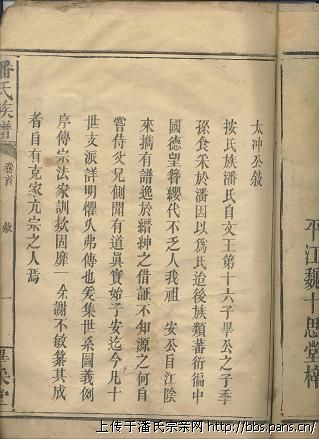 平江魏十思堂梓
太冲公敘
按氏族潘氏自文王第十六子畢公之子季
孫食采於潘因以為氏迨後族類蕃衍徧中
國德望簪纓代不乏人我祖 安公自江陰
來攜有譜逸於縉紳之借証不知源之何自
嘗侍父兄側聞有道眞實始子安迄今凡十
世支派詳明懼久弗傳也矣集世系圖義例
序傳宗法家訓欵固靡一余謝不敏纂其成
者自有克家亢宗之人焉
潘氏族譜
卷首
敘
一
采堂
上传于潘氏宗亲网 http://bbs.pans.cn